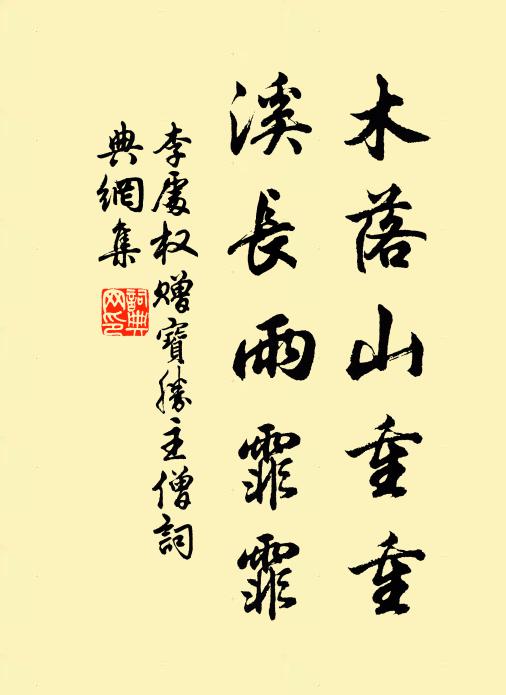 木落山重重
溪長雨霏霏
李處权贈寶勝主僧詞
典網集
詞典
网印